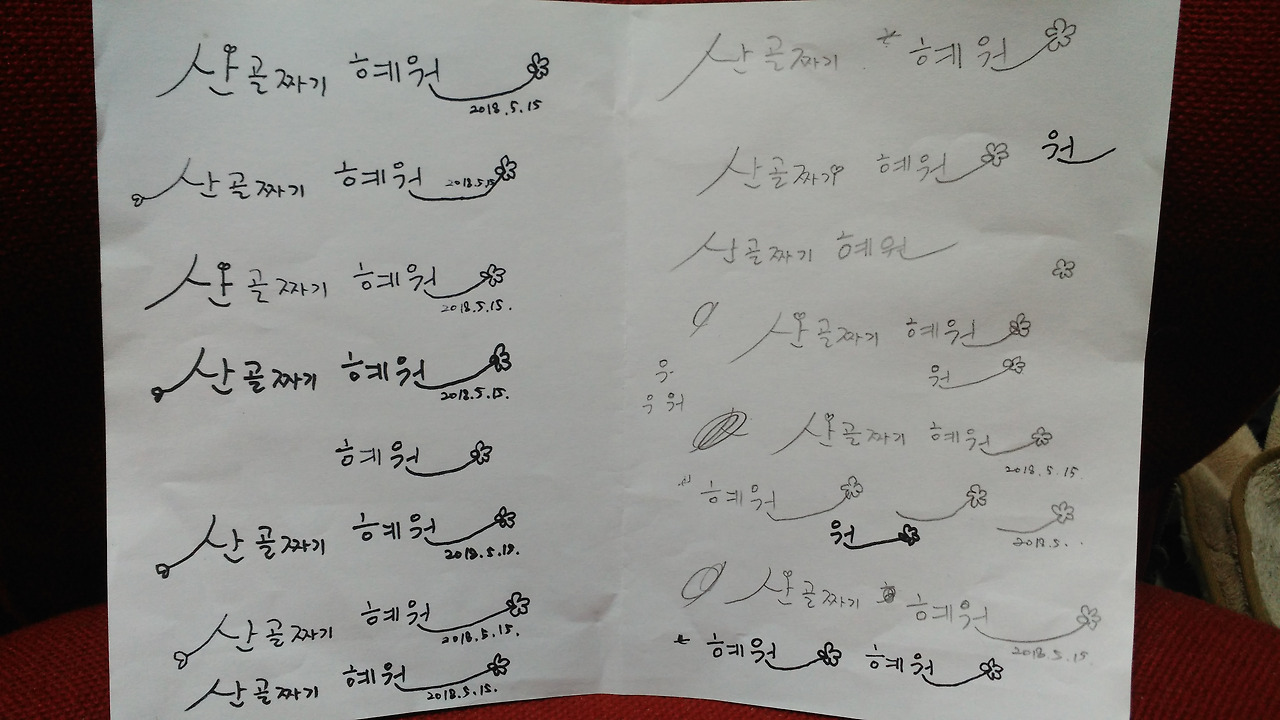 산골짜기 혜원
2018.5.15
산골짜기 혜원
2018.5.15
산골짜기 혜원
2018.5.15.
산골짜기 혜원
2018.5.15.
혜원
산골짜기 혜원
2018.5.19.
산골짜기 혜원
2018.5.15.
산골짜기 혜원
2018.5.15.
산골짜기 혜원
산골짜기 혜원
원
산골짜기 혜원
산골짜기 혜원
원
우
우 워
산골짜기 혜원
2018.5.15.
혜원
원
2018.5.
산골짜기 혜원
2018.5.15.
혜원 혜원